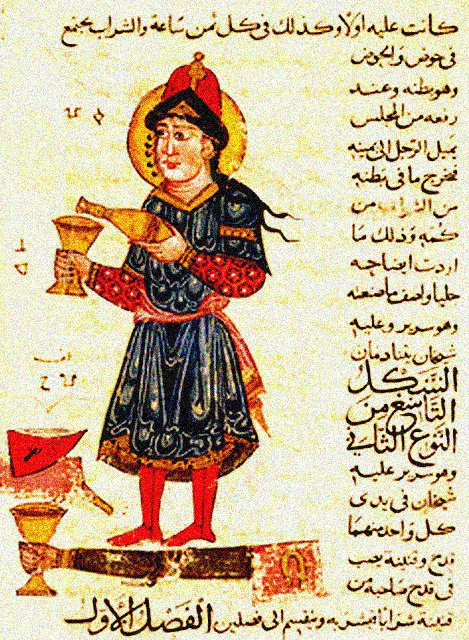 كانت عليه اولا وكذلك فى كل من ساعة والشراب يجتمع
فى حوض والحوض
وهو بطنه وعند
رفعه من المجلس
يميل الرجل الى يمينه
فيخرج ما فى بطنه
من الشراب من
كمه وذلك ما
اردت ايضاحه
جليا واصف ما صنعته
وهو سرير وعليه
شيخان يتنادمان
الشكل
التاسع من
النوع الثانى
وهو سرير عليه
شيخان فى يدى
كل واحد منهما
قدح وقنينة يصب
فى قدح صاحبه من
قنينة شرابا فيشربه وينقسم الى فصلين الفصل الاول